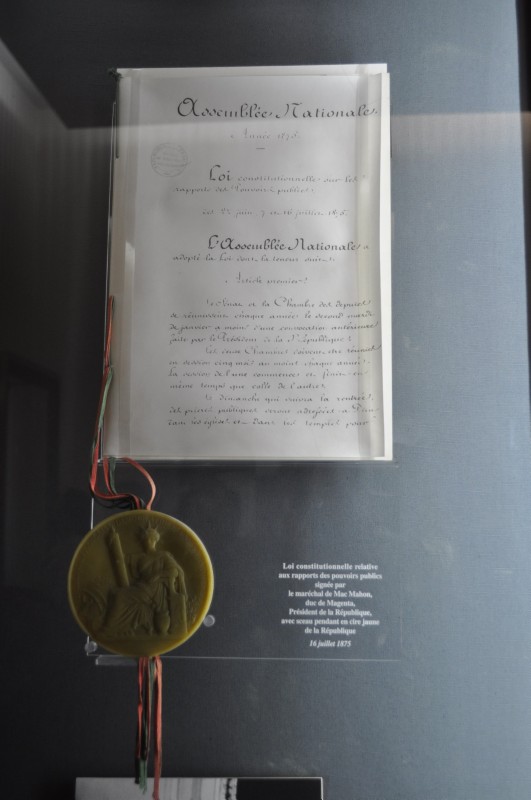 Assemblée Nationale.
Année 1875.
Loi constitutionnelle sur les
rapports des Pouvoirs publics.
Les 22 juin, 7 et 16 juillet 1875.
L'Assemblée Nationale a
adopté la Loi dont la teneur suit:
Article premier.
Le Sénat et la Chambre des députés
se réunissent chaque année le second mardi
de janvier à moins d'une convocation antérieure
faite par le Président de la République.
Les deux Chambres doivent être réunies
en session cinq mois au moins chaque année.
La session de l'une commence et finit en
même temps que celle de l'autre.
Le dimanche qui suivra la rentrée,
des prières publiques seront adressées à Dieu
dans les églises et dans les temples pour
Loi constitutionnelle relative
aux rapports des pouvoirs publics
signée par
le maréchal de Mac Mahon,
duc de Magenta,
Président de la République,
avec sceau pendant en cire jaune
de la République
16 juillet 1875